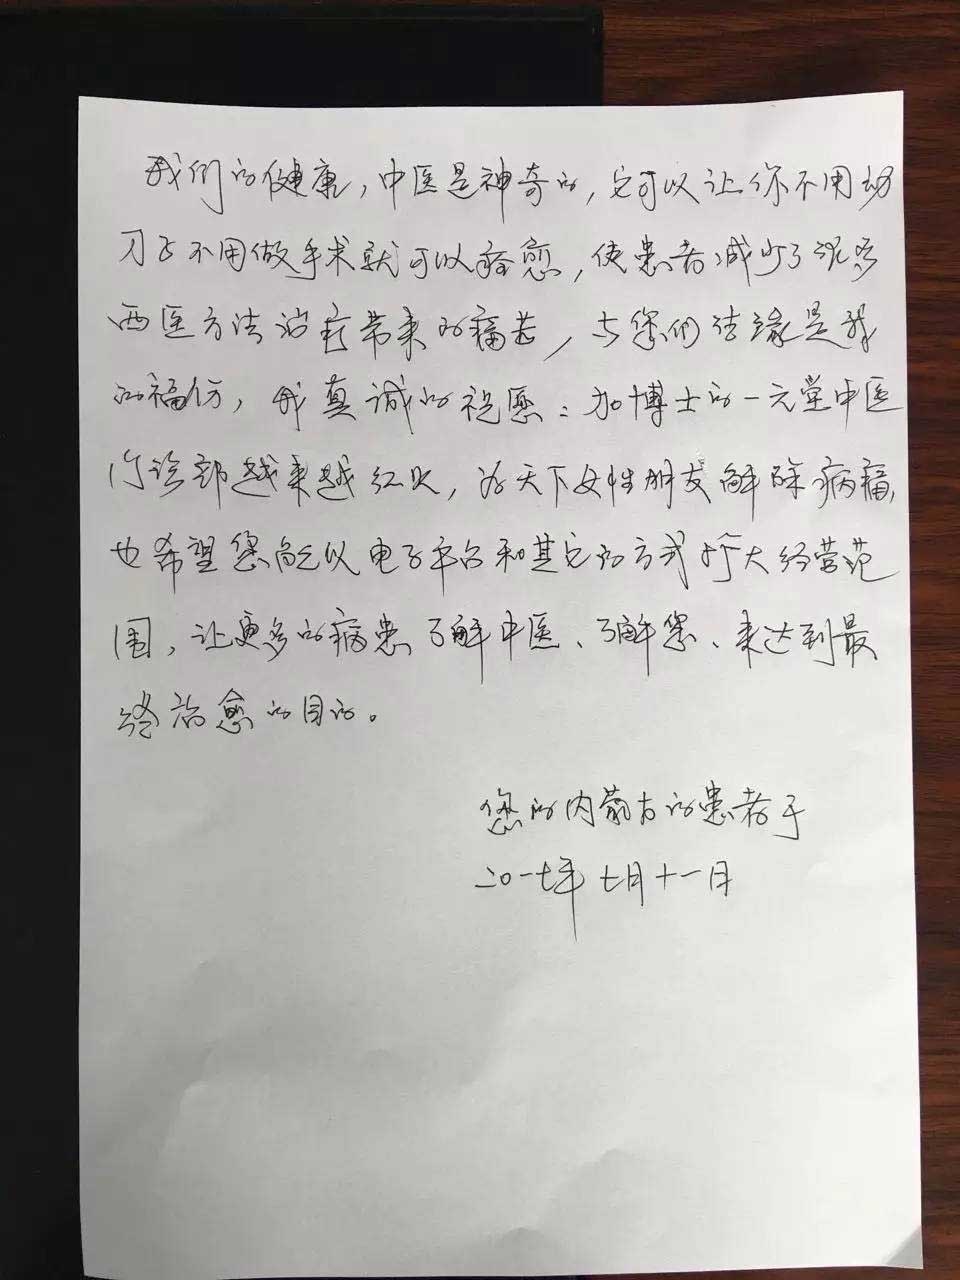 我们的健康，中医是神奇的，它可以让你不用动
刀子不用做手术就可以痊愈，使患者减少了很多
西医方法治疗带来的痛苦，与您们结缘是我
的福份，我真诚的祝愿：加博士的一元堂中医
门诊部越来越红火，为天下女性朋友解除病痛，
也希望您能以电子平台和其它的方式扩大经营范
围，让更多的病患了解中医、了解您、来达到最
终治愈的目的。
您的内蒙古的患者于
二0一七年七月十一日